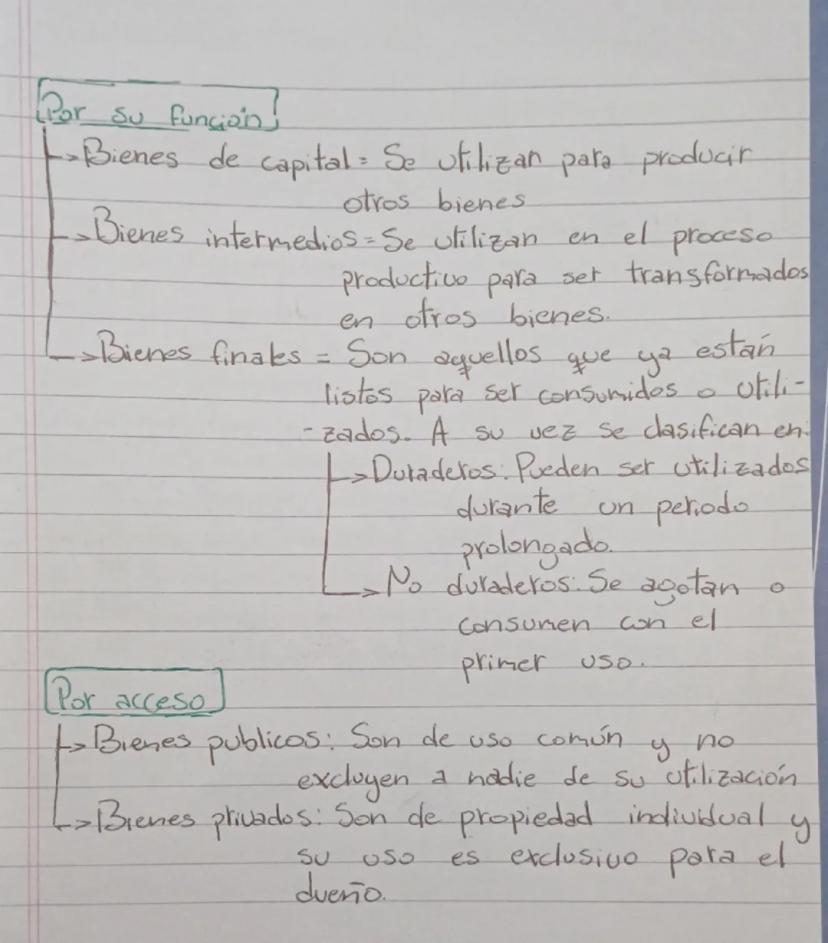 Por su función
Bienes de capital = Se utilizan para producir
otros bienes
Bienes intermedios = Se utilizan en el proceso
productivo para ser transformados
en otros bienes.
Bienes finales = Son aquellos que ya están
listos para ser consumidos o utili-
-zados. A su vez se clasifican en:
Duraderos: Pueden ser utilizados
durante un periodo
prolongado.
No duraderos: Se agotan o
consumen con el
primer uso.
Por acceso
Bienes publicos: Son de uso común y no
excluyen a nadie de su utilización
Bienes privados: Son de propiedad individual y
su uso es exclusivo para el
dueño.